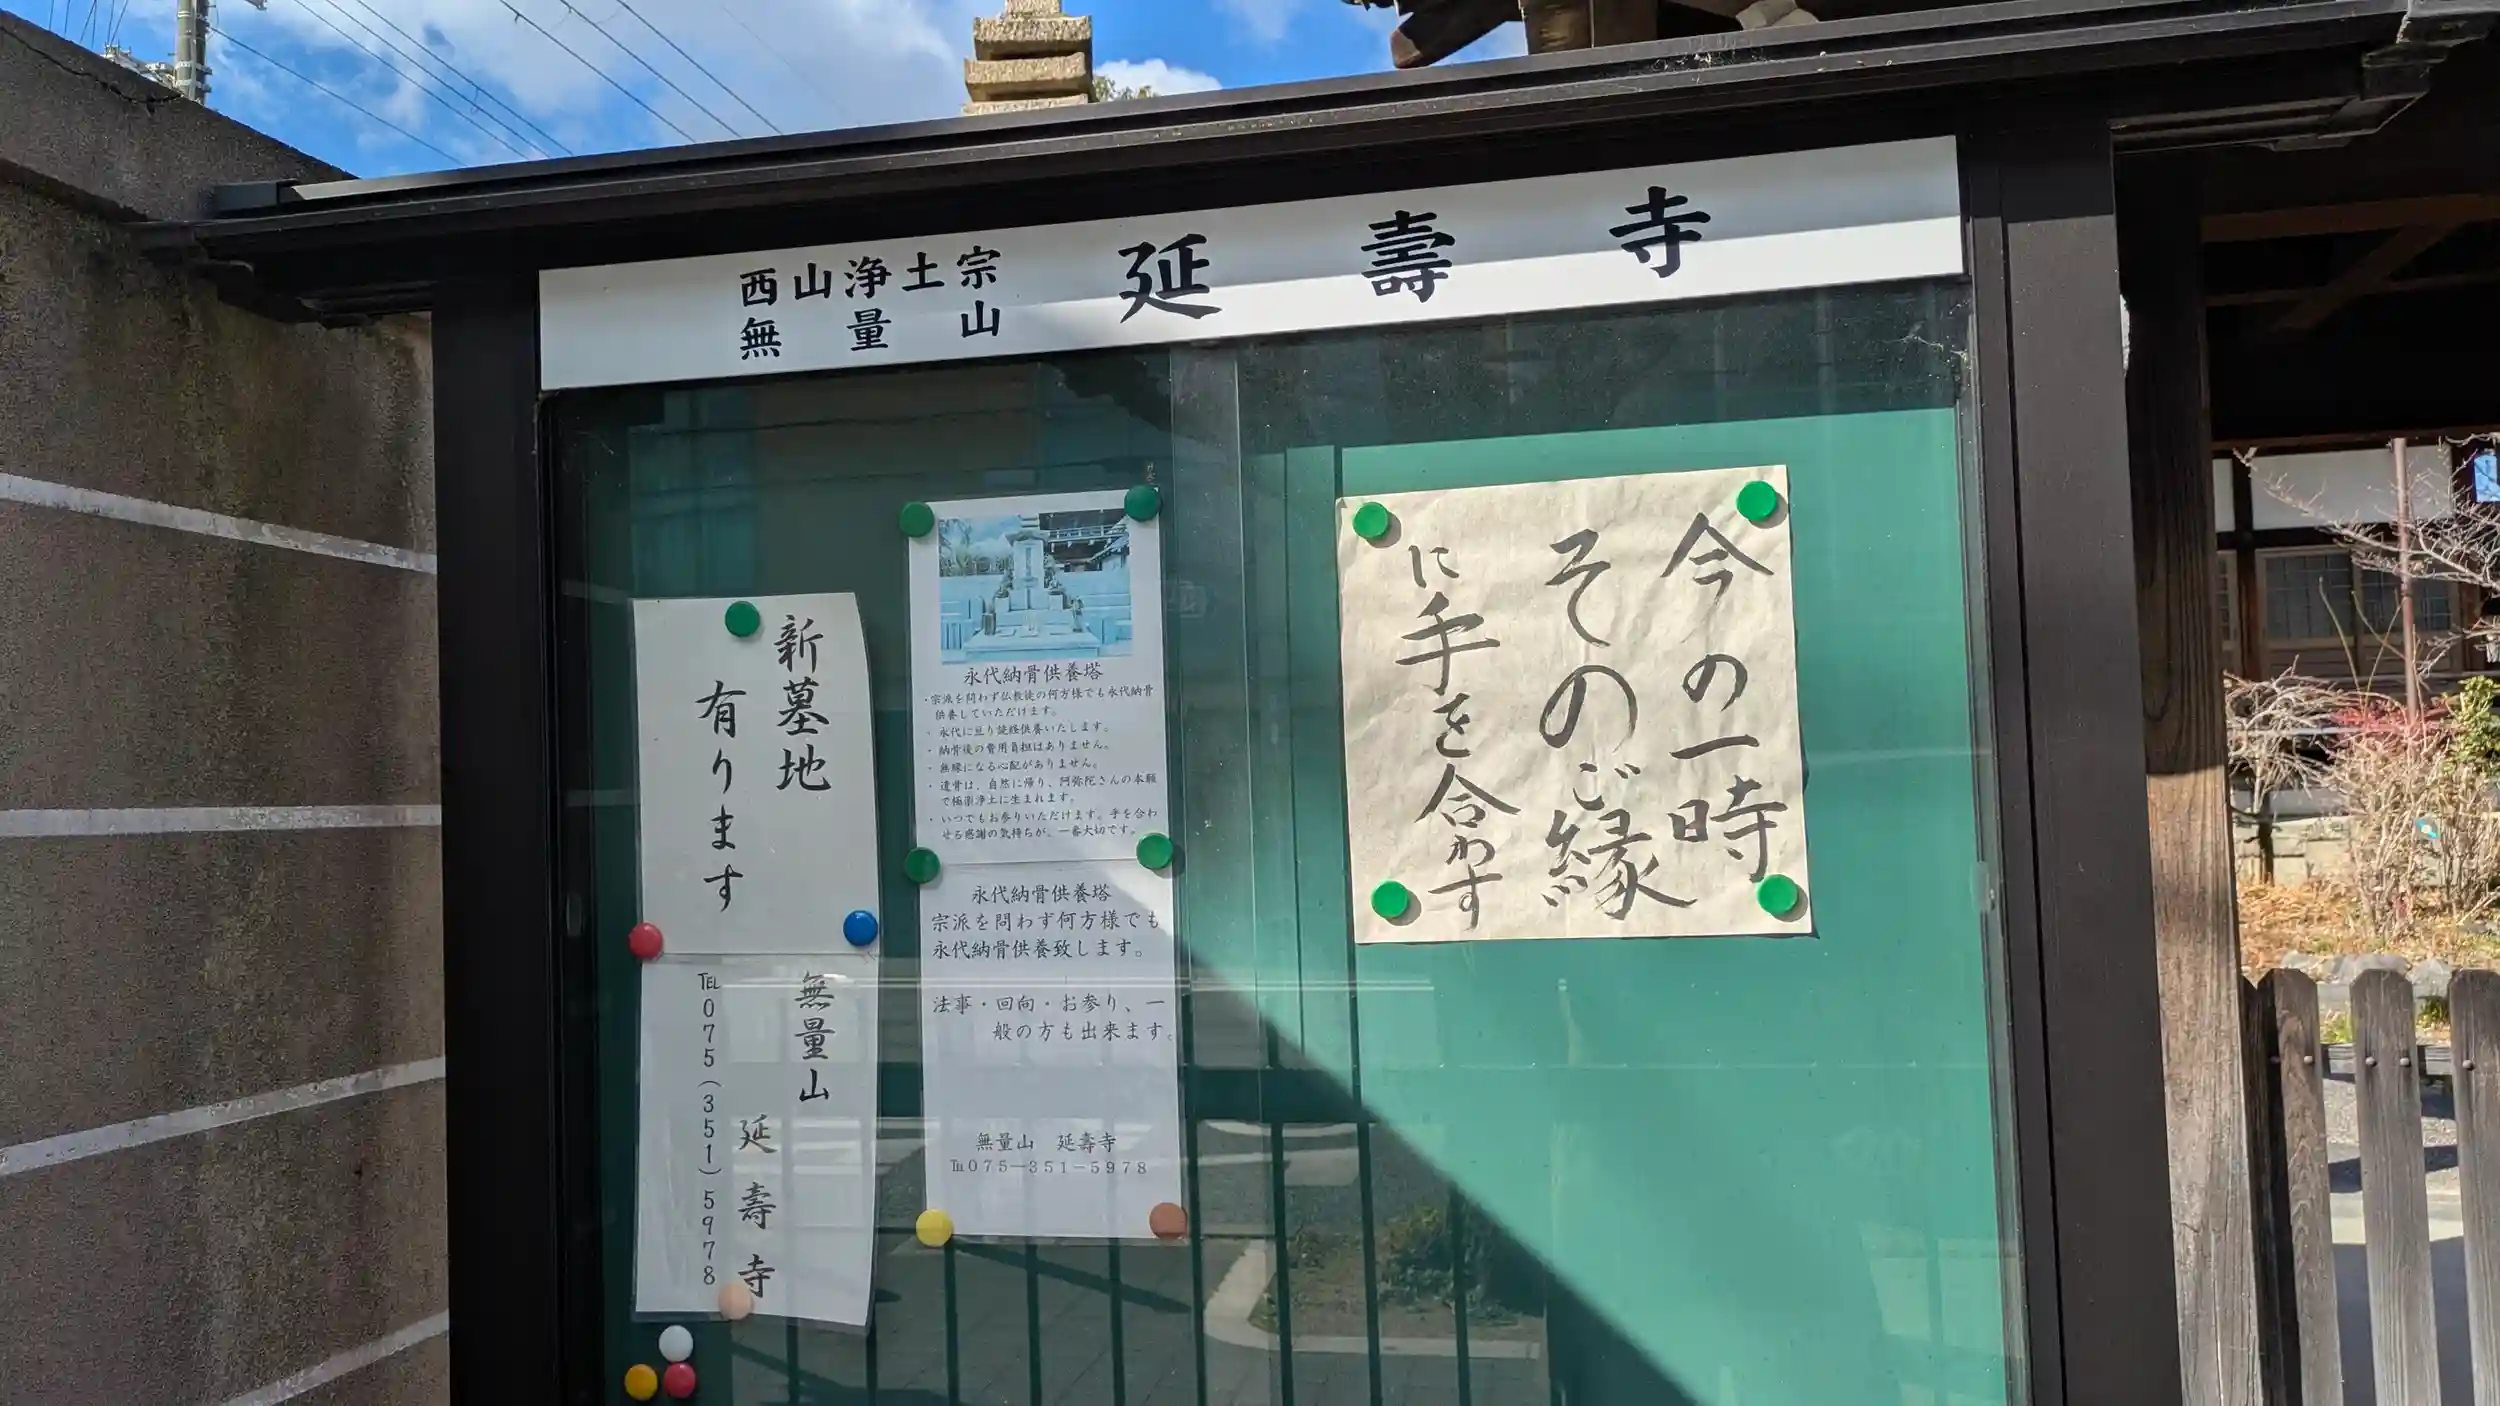 西山浄土宗
無量山
延壽寺
今の一時
そのご縁
に手を合わす
永代納骨供養塔
・宗派を問わず仏教徒の何方様でも永代納骨
供養していただけます。
・永代に亘り読経供養いたします。
・納骨後の費用負担はありません。
・無縁になる心配がありません。
・遺骨は、自然に帰り、阿弥陀さんの本願
で極楽浄土に生まれます。
・いつでもお参りいただけます。手を合わ
せる感謝の気持ちが、一番大切です。
永代納骨供養塔
宗派を問わず何方様でも
永代納骨供養致します。
法事・回向・お参り、一
般の方も出来ます。
無量山 延壽寺
℡075―351−5978
新墓地
有ります
無量山
延壽寺
℡075(351)5978